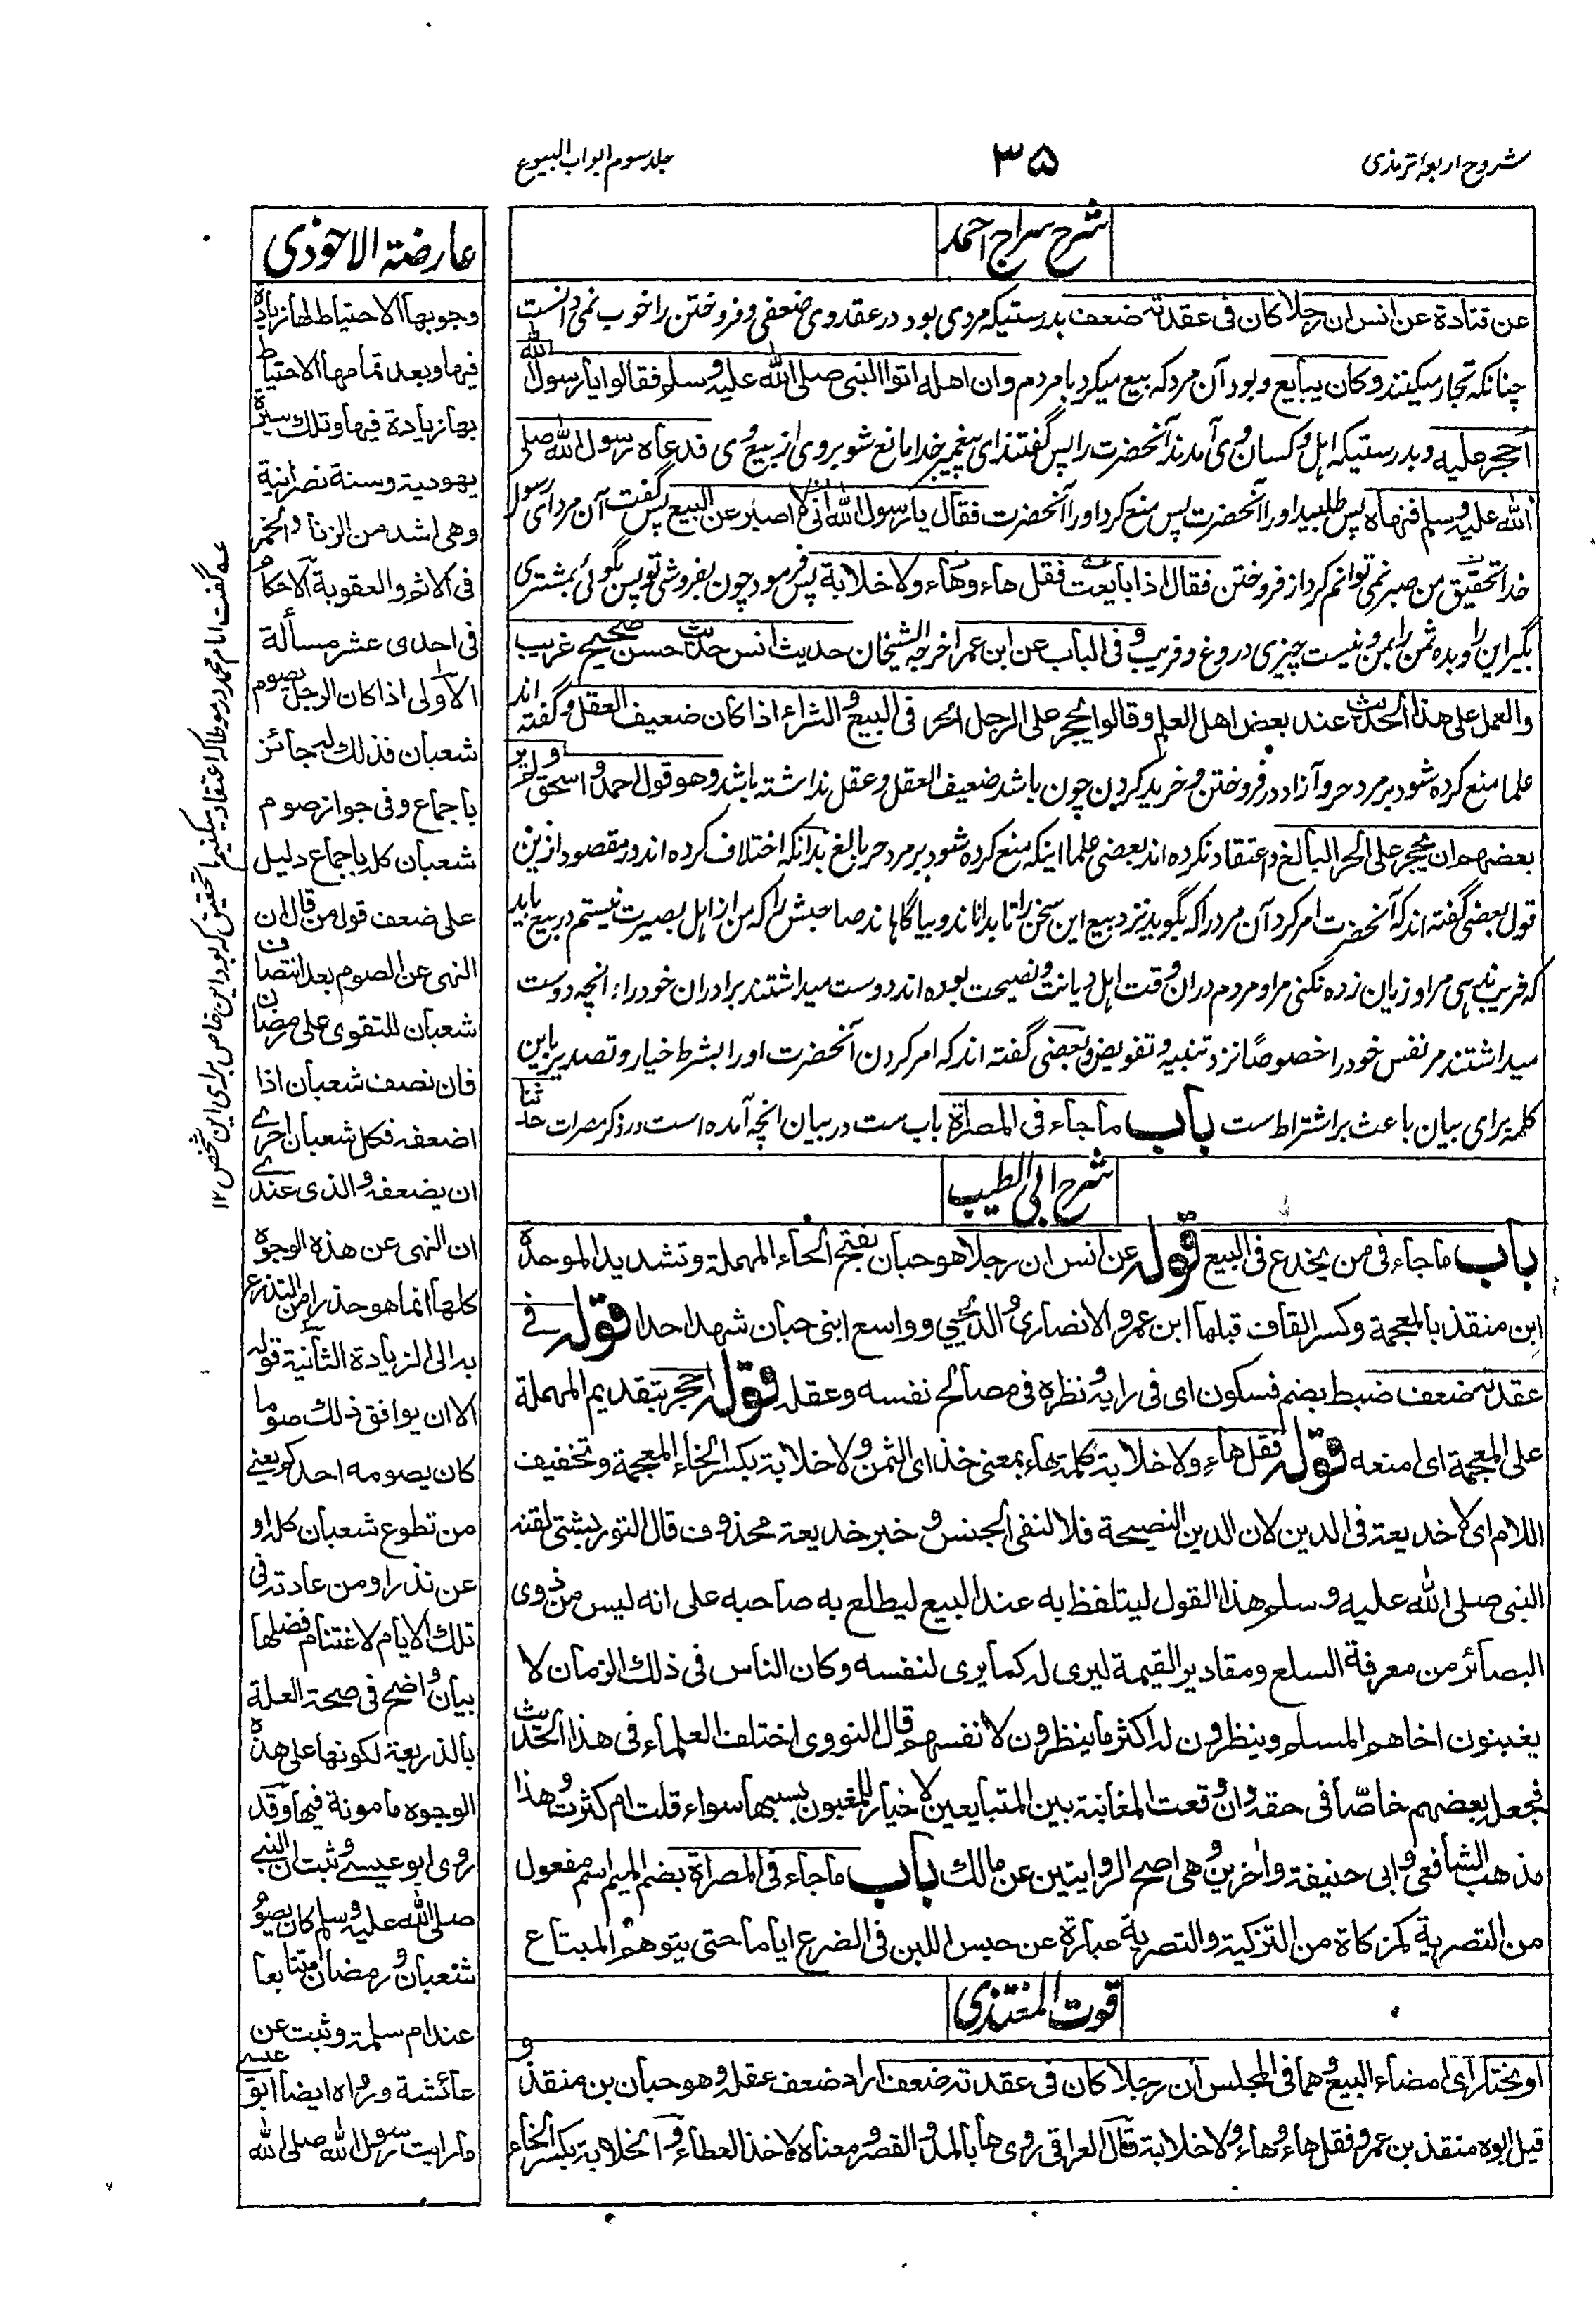 شروح اربعۂ ترمذی
۳۵
جلد سوم ابواب البیوع
شرح سراج احمد
عن قتادة عن انس ان رجلا كان فى عقدته ضعف بدرستیکہ مردی بود در عقد وی ضعفی و فروختن را خوب نمی دانست
چنانکہ تجار میکنند وكان يبايع و بود آن مرد کہ بیع میکرد با مردم وان اهله اتوا النبى صلى الله عليه وسلم فقالوا يا رسول الله
احجر عليه و بدرستیکہ اہل و کسان وی آمدند آنحضرت را پس گفتند ای پیغمبر خدا مانع شو بر وی از بیع وی فدعاه رسول الله صلى
الله عليه وسلم فنهاه پس طلبید او را آنحضرت پس منع کرد او را آنحضرت فقال يا رسول الله انى لا اصبر عن البيع پس گفت آن مرد ای رسول
خدا تحقیق من صبر نمی توانم کرد از فروختن فقال اذا بايعت فقل هاء وهاء ولا خلابة پس فرمود چون بفروشی تو پس بگوئی بمشتری
بگیر این را و بده ثمن را بمن و نیست چیزی دروغ و فریب وفى الباب عن ابن عمر اخرجه الشيخان حديث انس حديث حسن صحيح غريب
والعمل على هذا الحديث عند بعض اهل العلم وقالوا يحجر على الرجل الحر فى البيع والشراء اذا كان ضعيف العقل و گفته اند
علما منع کرده شود بر مرد حر و آزاد در فروختن و خرید کردن چون باشد ضعیف العقل و عقل نداشته باشد وهو قول احمد واسحق ولم ير
بعضهم ان يحجر على الحر البالغ و اعتقاد نکرده اند بعضی علما اینکہ منع کرده شود بر مرد حر بالغ بدانکہ اختلاف کرده اند در مقصود ازین
قول بعضی گفته اند کہ آنحضرت امر کرد آن مرد را کہ بگوید نزد بیع این سخن را تا بداناند و بیاگاهاند صاحبش را کہ من از اهل بصیرت نیستم در بیع باید
کہ فریب ندہی مرا و زیان زده نکنی مرا و مردم دران وقت اہل دیانت و نصیحت بوده اند دوست میداشتند برادران خود را انچه دوست
میداشتند مر نفس خود را خصوصا نزد تنبیه و تفویض و بعضی گفته اند کہ امر کردن آنحضرت او را بشرط خیار و تصدیر باین
کلمہ برای بیان باعث بر اشتراط ست باب ما جاء فى المصراة باب ست در بیان انچه آمده است در ذکر مصرات حدثنا
شرح ابی الطیب
باب ما جاء فى من يخدع فى البيع قوله عن انس ان رجلا هو حبان بفتح الحاء المهملة وتشديد الموحدة
ابن منقذ بالمعجمة وكسر القاف قبلها ابن عمرو الانصارى والد يحيى وواسع ابنى حبان شهد احدا قوله فى
عقدته ضعف ضبط بضم فسكون اى فى رايه ونظره فى مصالح نفسه وعقله قوله احجر بتقديم المهملة
على المعجمة اى امنعه قوله فقل هاء ولا خلابة كلمة هاء بمعنى خذ اى الثمن ولا خلابة بكسر الخاء المعجمة وتخفيف
اللام اى لا خديعة فى الدين لان الدين النصيحة فلا لنفى الجنس وخبر خديعة محذوف قال التوربشتى لقنه
النبى صلى الله عليه وسلم هذا القول ليتلفظ به عند البيع ليطلع به صاحبه على انه ليس من ذوى
البصائر من معرفة السلع ومقادير القيمة ليرى له كما يرى لنفسه وكان الناس فى ذلك الزمان لا
يغبنون اخاهم المسلم وينظرون له اكثر ما ينظرون لانفسهم قال النووى اختلف العلماء فى هذا الحديث
فجعل بعضهم خاصا فى حقه وان وقعت المغابنة بين المتبايعين لا خيار للمغبون بسببها سواء قلت ام كثرت وهذا
مذهب الشافعى وابى حنيفة واخرين وهى اصح الروايتين عن مالك باب ما جاء فى المصراة بضم الميم اسم مفعول
من التصرية كمزكاة من التزكية والتصرية عبارة عن حبس اللبن فى الضرع اياما حتى يتوهم المبتاع
قوت المغتذی
او يختار اى امضاء البيع وهما فى المجلس ان رجلا كان فى عقدته ضعف اراد ضعف عقله وهو حبان بن منقذ و
قيل ابوه منقذ بن عمرو فقل هاء وهاء ولا خلابة قال العراقى روى ها بالمد والقصر ومعناه خذ العطاء والخلابة بكسر الخاء
عارضة الاحوذی
وجوبها الاحتياط لها زيادة
فيها وبعد تمامها الاحتياط
بها زيادة فيها وتلك سيرة
يهودية وسنة نصرانية
وهى اشد من الزنا والخمر
فى الاثم والعقوبة الاحكام
فى احدى عشر مسألة
الاولى اذا كان الرجل يصوم
شعبان فذلك له جائز
باجماع وفى جواز صوم
شعبان كله باجماع دليل
على ضعف قول من قال ان
النهى عن الصوم بعد انتصاف
شعبان للتقوى على رمضان
فان نصف شعبان اذا
اضعفه فكل شعبان احرى
ان يضعفه والذى عندى
ان النهى عن هذه الوجوه
كلها انما هو حذرا من التذرع
به الى الزيادة الثانية قوله
الا ان يوافق ذلك صوما
كان يصومه احدكم يعنى
من تطوع شعبان كله او
عن نذر او من عادته فى
تلك الايام لاغتنام فضلها
بيان واضح فى صحة العلة
بالذريعة لكونها على هذه
الوجوه مامونة فيها وقد
روى ابو عيسى وثبت ان النبى
صلى الله عليه وسلم كان يصوم
شعبان ورمضان متتابعا
عند ام سلمة وثبت عن
عائشة ورواه ايضا ابو عيسى
ما رايت رسول الله صلى الله
عہ گفت امام محمد در موطا کہ اعتقاد میکنیم ما تحقیق کہ بود این خاص برای این شخص ۱۲